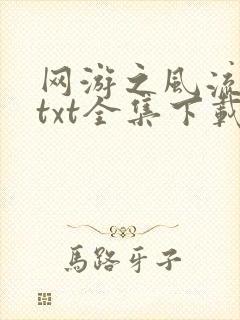 网游之风流
txt全集下载
馬路牙子